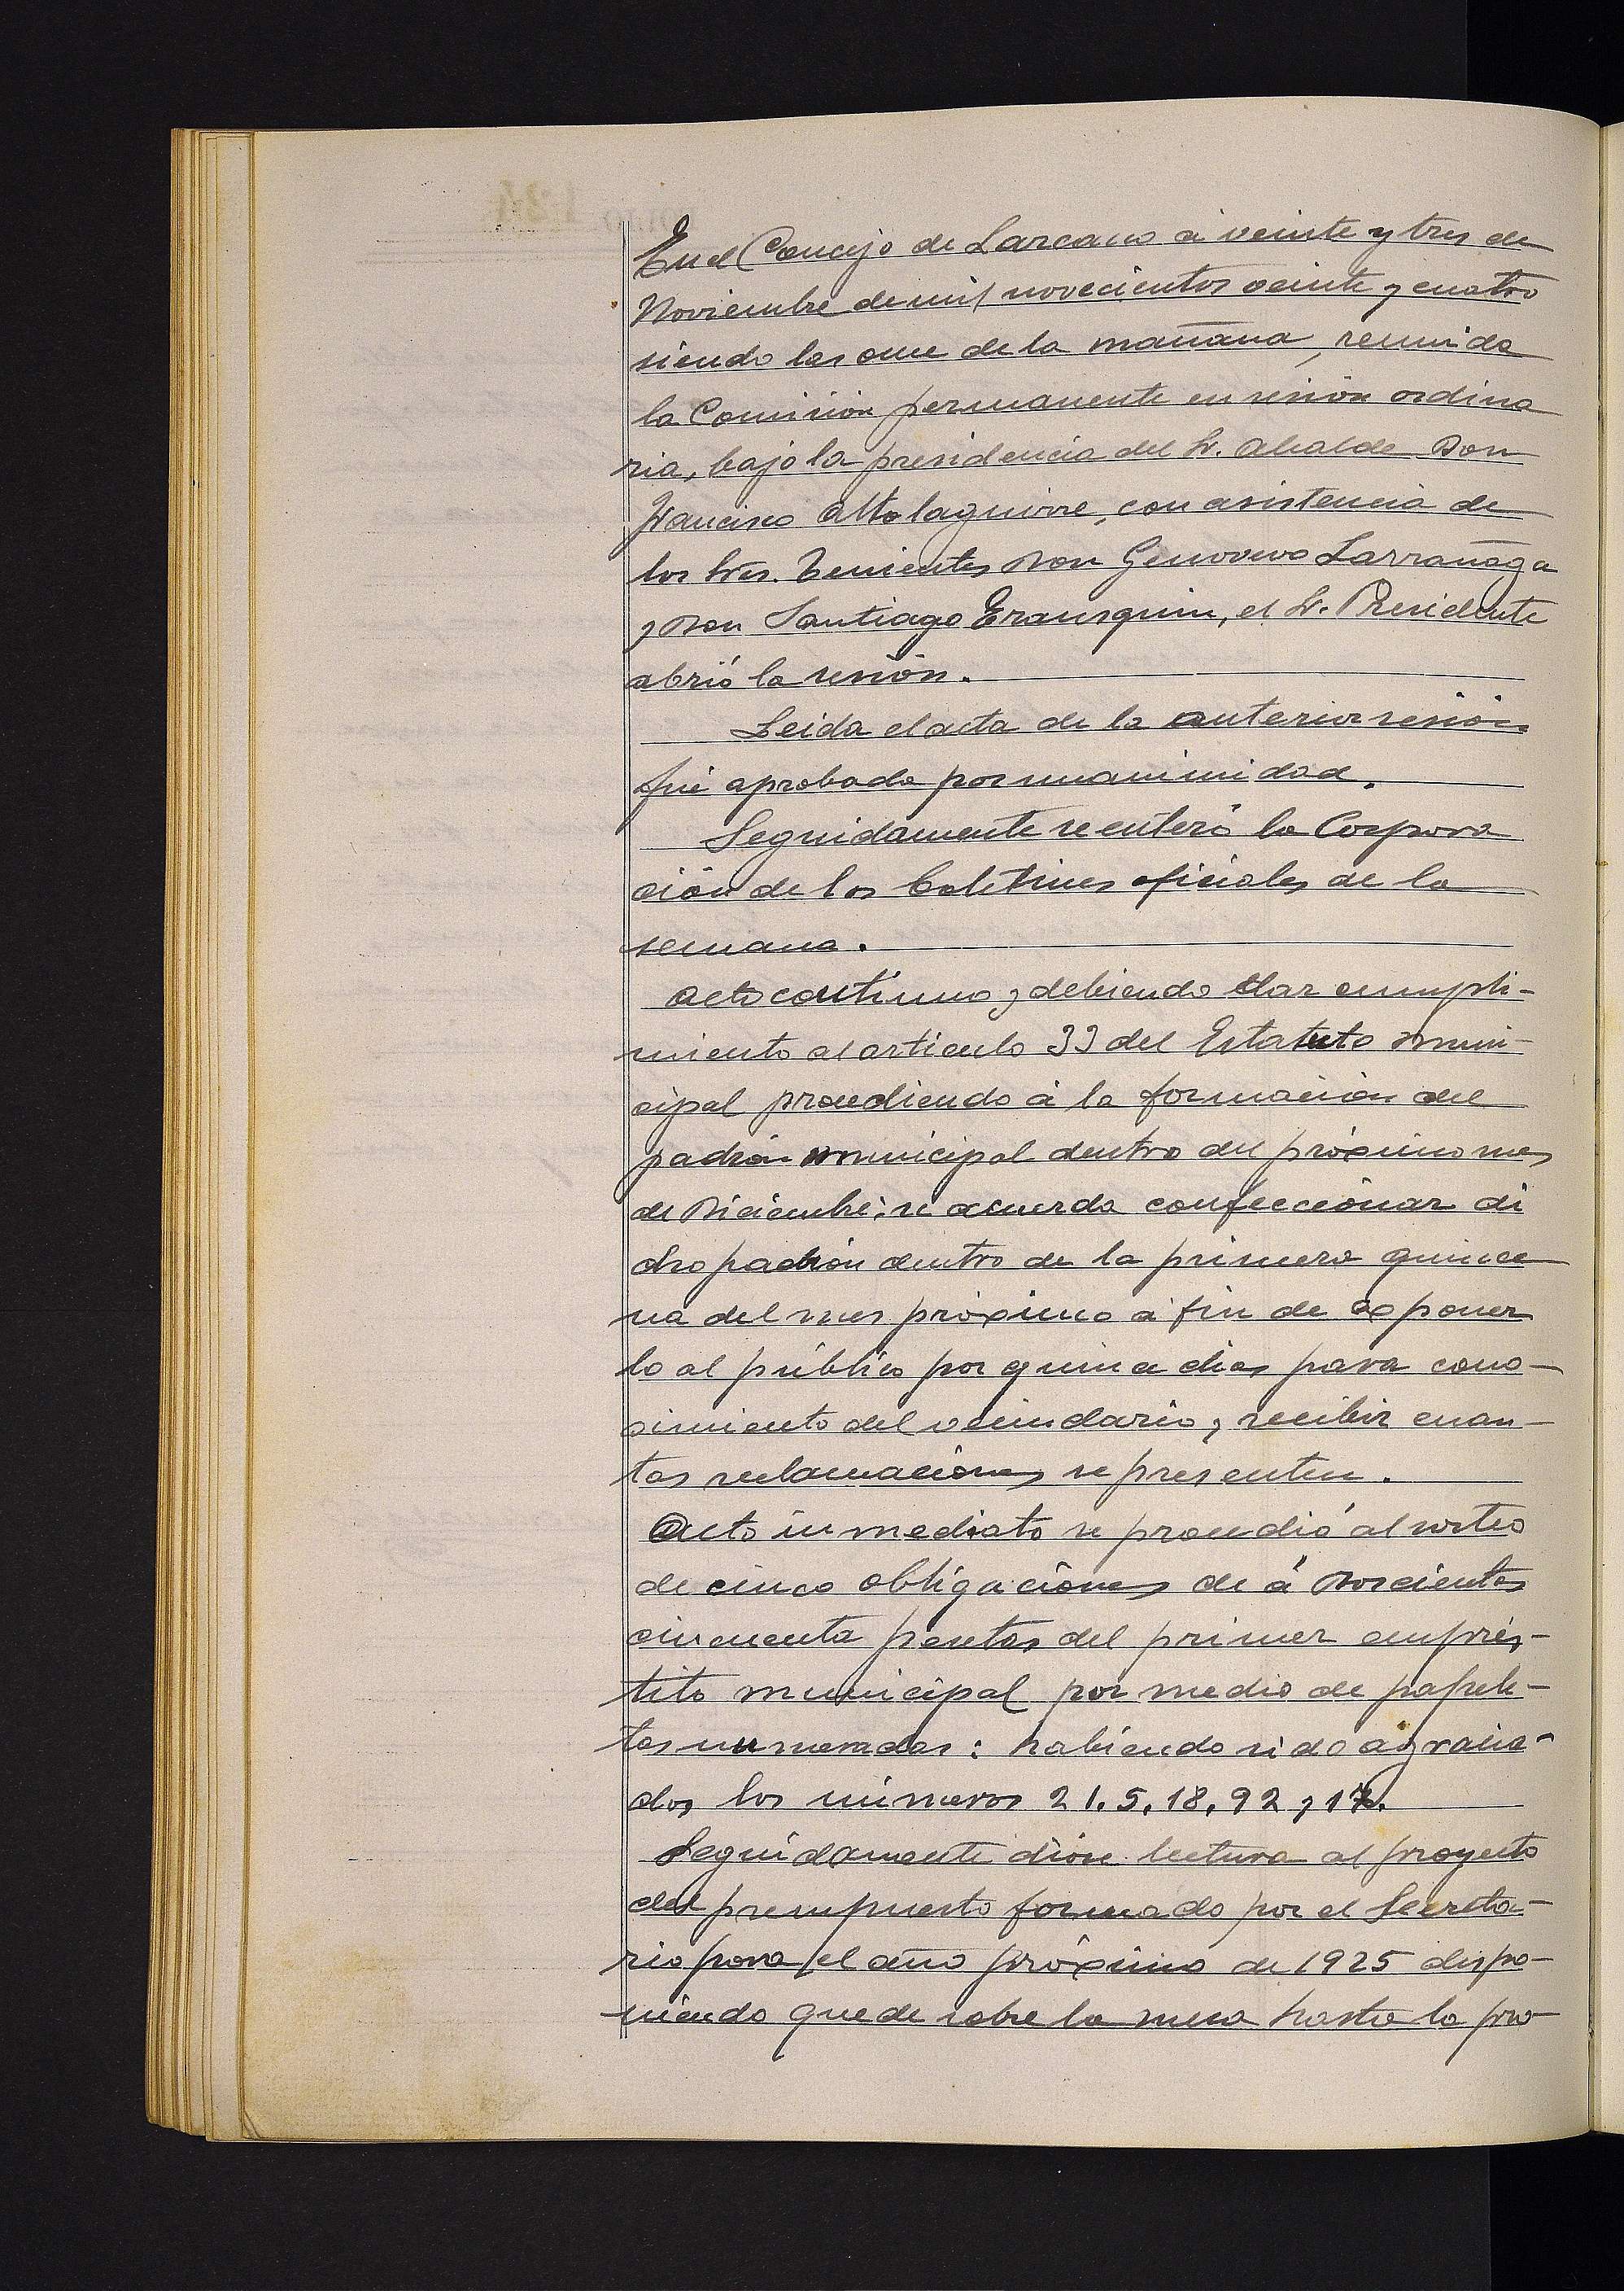 En el Concejo de Lazcano á veinte y tres de
Noviembre de mil novecientos veinte y cuatro
siendo las once de la mañana, reunida
la Comisión permanente en sesión ordina
ria, bajo la presidencia del Sr. Alcalde Don
Francisco Altolaguirre, con asistencia de
los Sres. Tenientes Don Genovevo Larrañaga
y Don Santiago Erausquin, el Sr. Presidente
abrió la sesión.
Leida el acta de la anterior sesión
fué aprobada por unanimidad.
Seguidamente se enteró la Corpora
ción de los boletines oficiales de la
semana.
Acto continuo y debiendo dar cumpli-
miento al artículo 33 del Estatuto muni-
cipal procediendo á la formación del
padrón municipal dentro del próximo mes
de Diciembre; se acuerda confeccionar di
cho padrón dentro de la primera quince
na del mes próximo á fin de exponer
lo al público por quince dias para cono-
cimiento del vecindario y recibir cuan-
tas reclamaciones se presenten.
Acto inmediato se procedió al sorteo
de cinco obligaciones de á Doscientas
cincuenta pesetas del primer emprés-
tito municipal por medio de papele-
tas numeradas: habiendo sido agracia-
dos los números 21. 5, 18, 92 y 17.
Seguidamente dióse lectura al proyecto
del presupuesto formado por el Secreta-
rio para el año próximo de 1925 dispo-
niendo quede sobre la mesa hasta la pró-